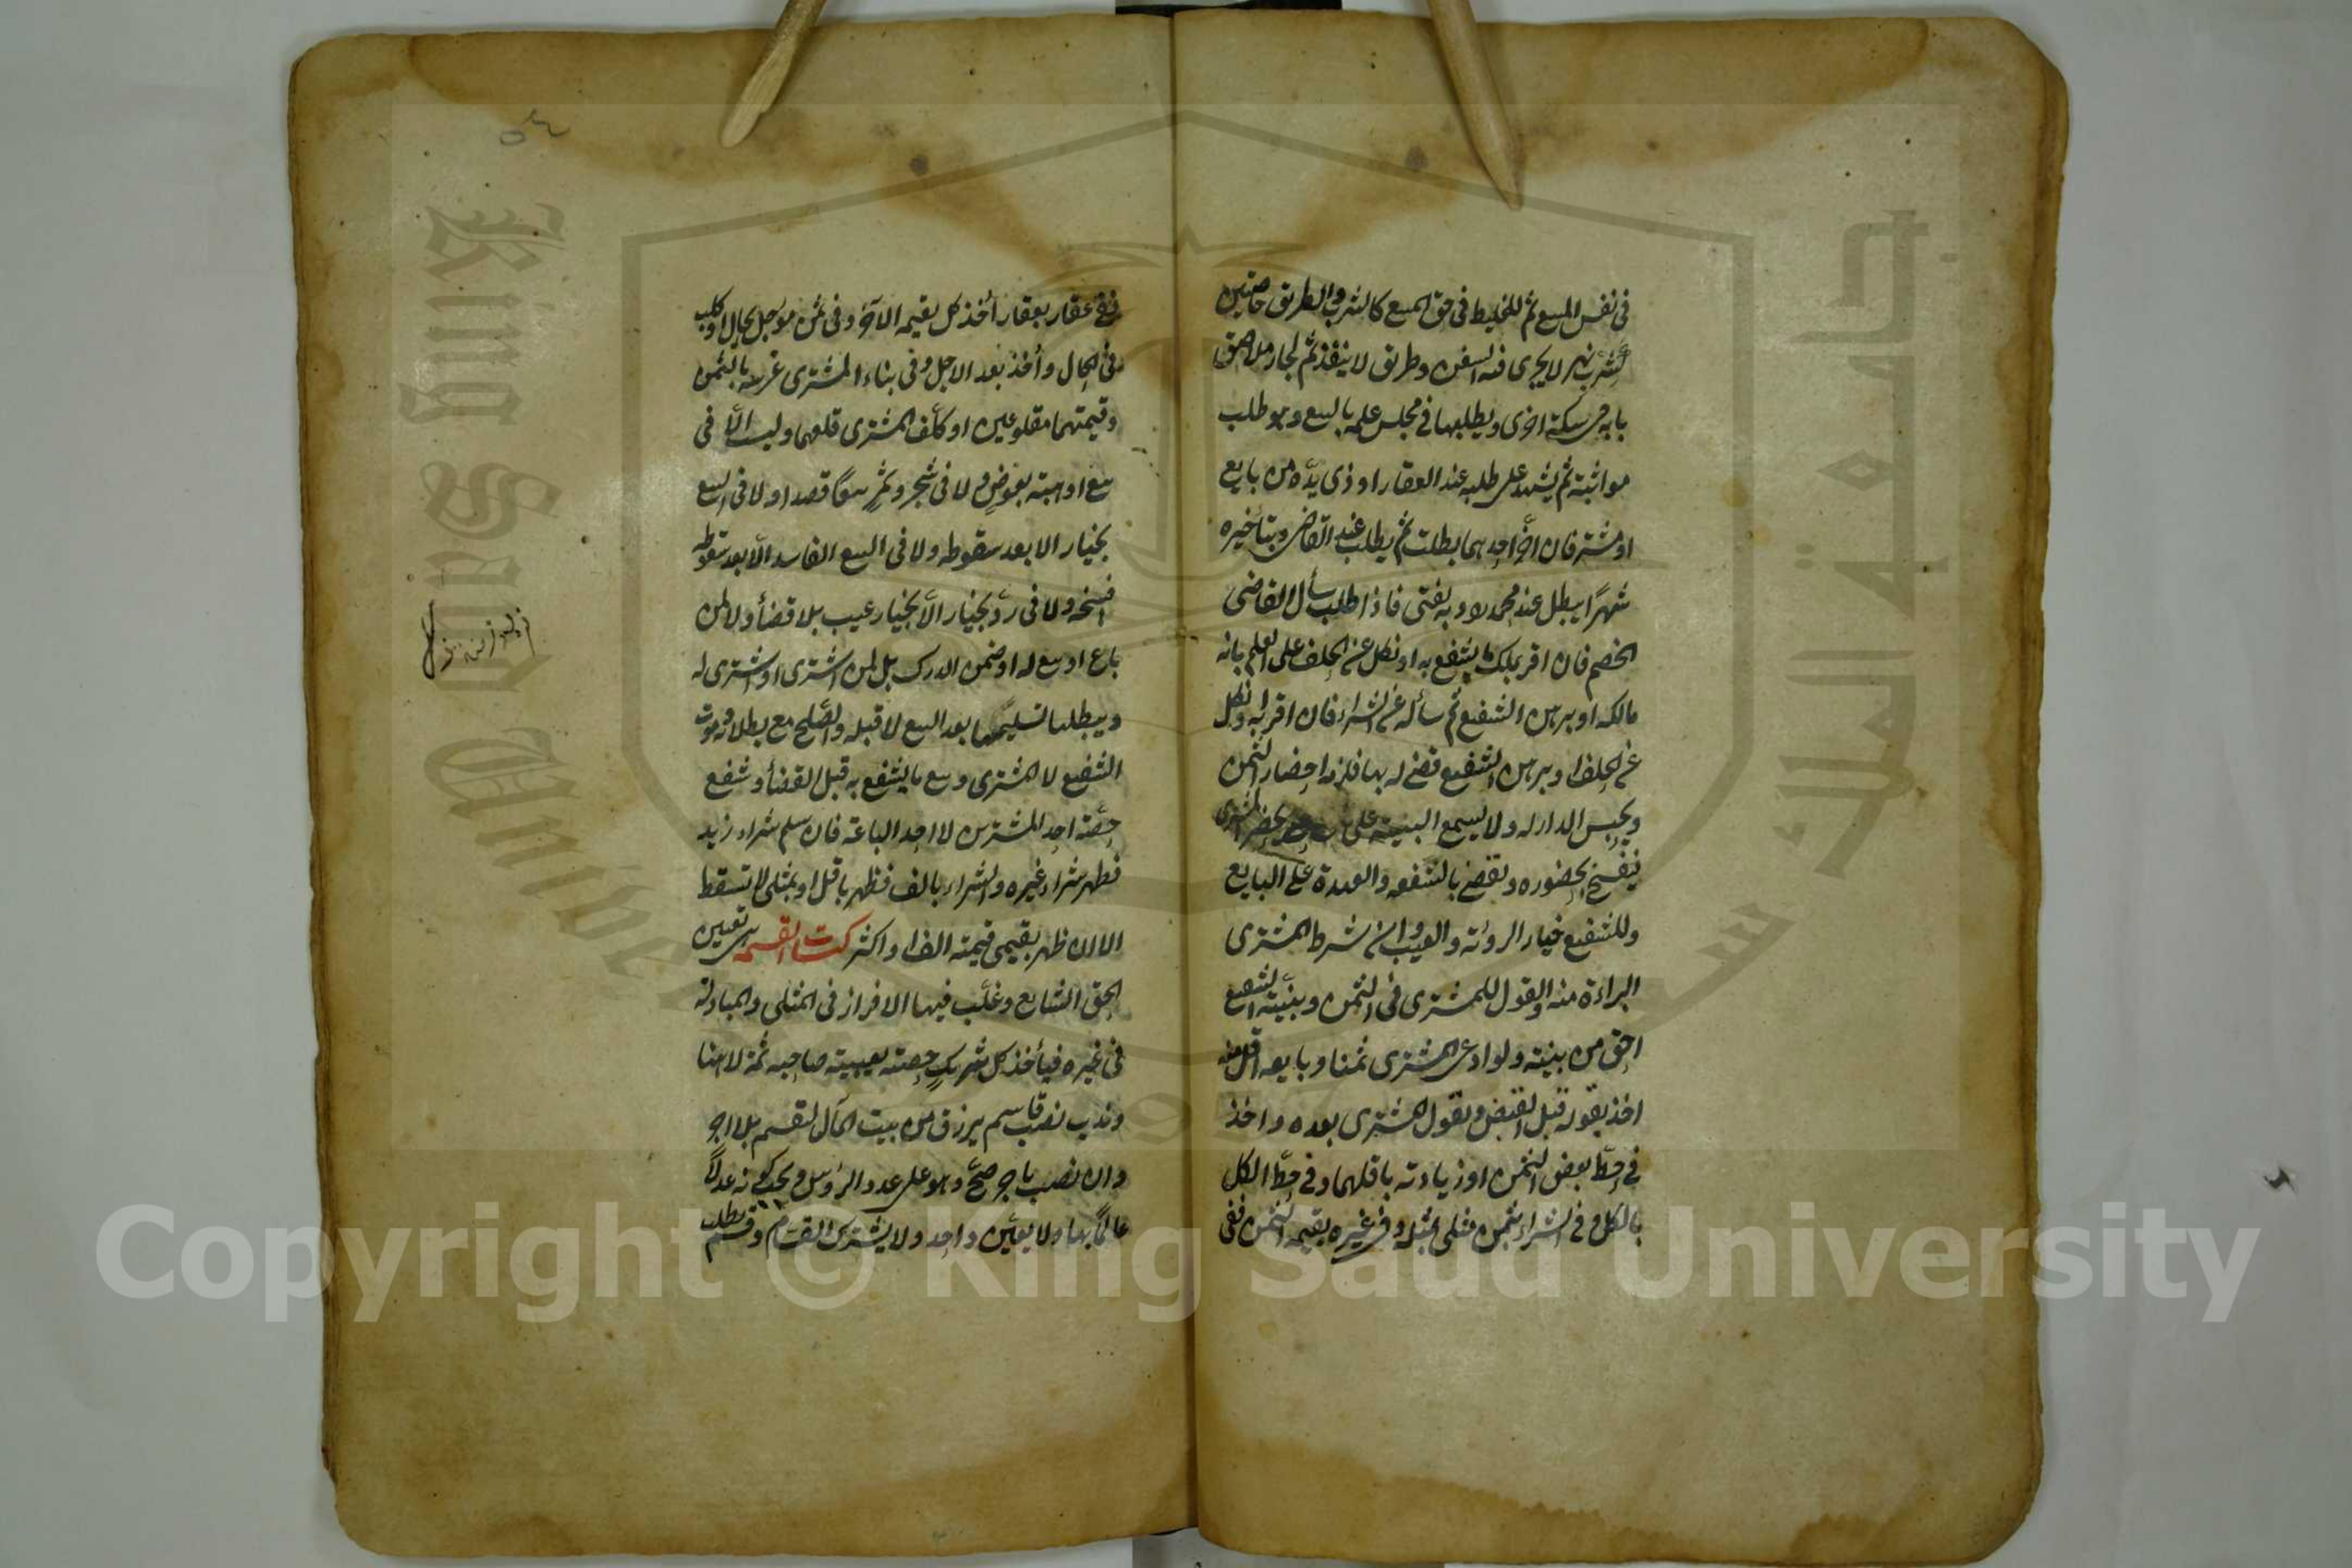 في نفس المبيع ثم للخليط في حق المبيع كالشرب والطريق خاصين
كشرب نهر لا يجرى فيه السفن وطريق لا ينفذ ثم لجار ملاصق
بابه في سكة اخرى ويطلبها في مجلس علمه بالبيع وهو طلب
مواثبة ثم يشهد على طلبه عند العقار او ذى يده من بايع
او مشتر فان اخر احدهما بطلت ثم يطلب عند القاضى وبتاخيره
شهرًا يبطل عند محمد وبه يفتى فاذا طلب سأل القاضى
الخصم فان اقر بملك ما يشفع به او نكل عن الحلف على العلم بانه
مالكه او برهن الشفيع ثم سأله عن الشراء فان اقر به او نكل
عن الحلف او برهن الشفيع قضى له بها فلزمه احضار الثمن
ويحبس الدار له ولا يسمع البينة على حتى يحضر المشترى
فيفسخ بحضوره ويقضى بالشفعه والعهدة على البايع
وللشفيع خيار الروئة والعيب وان شرط المشترى
البراءة منه والقول للمشترى فى الثمن وبينة الشفيع
احق من بينته ولو ادعى المشترى ثمنا وبايعه اقل منه
اخذ بقوله قبل القبض وبقول المشترى بعده واخذ
في حط بعض الثمن او زيادته باقلهما وفي حط الكل
بالكل وفى الشراء بثمن مثلى بمثله وفى غيره بقيمة الثمن ففى
ففى عقار بعقار أخذ كل بقيمه الاخر وفى ثمن مؤجل بحال او طلب
فى الحال وأخذ بعد الاجل وفى بناء المشترى وغرسه بالثمن
وقيمتهما مقلوعين او كلف المشترى قلعهما وليس الا فى
بيع او هبة بعوض ولا فى شجر وثمر بيعا قصدا ولا فى البيع
بخيار الا بعد سقوطه ولا فى البيع الفاسد الا بعد سقوط
فسخه ولا فى رد بخيار الا بخيار عيب بلا قضأ ولا لمن
باع او بيع له او ضمن الدرك بل لمن اشترى او اشترى له
ويبطلها تسليمها بعد البيع لا قبله والصلح مع بطلانه وموت
الشفيع لا المشترى وبيع ما يشفع به قبل القضأ وشفع
حصة احد المشترين لا احد الباعة فان سلم شراء زيد
فظهر شراء غيره والشراء بالف فظهر باقل او بمثلى لم تسقط
الا ان ظهر بقيمى قيمته الف او اكثر كتاب القسمه هى تعيين
الحق الشايع وغلب فيها الافراز فى المثلى والمبادلة
فى غيره فيأخذ كل شريك حصته بغيبة صاحبه ثمة لا هنا
وندب نصب قاسم يرزق من بيت المال لتقسم بلا اجر
وان نصب باجر صح وهو على عدد الرؤس ويجب كونه عدلاً
عالمًا بها ولا يعين واحد ولا يشترك القسام وقسم بطلب